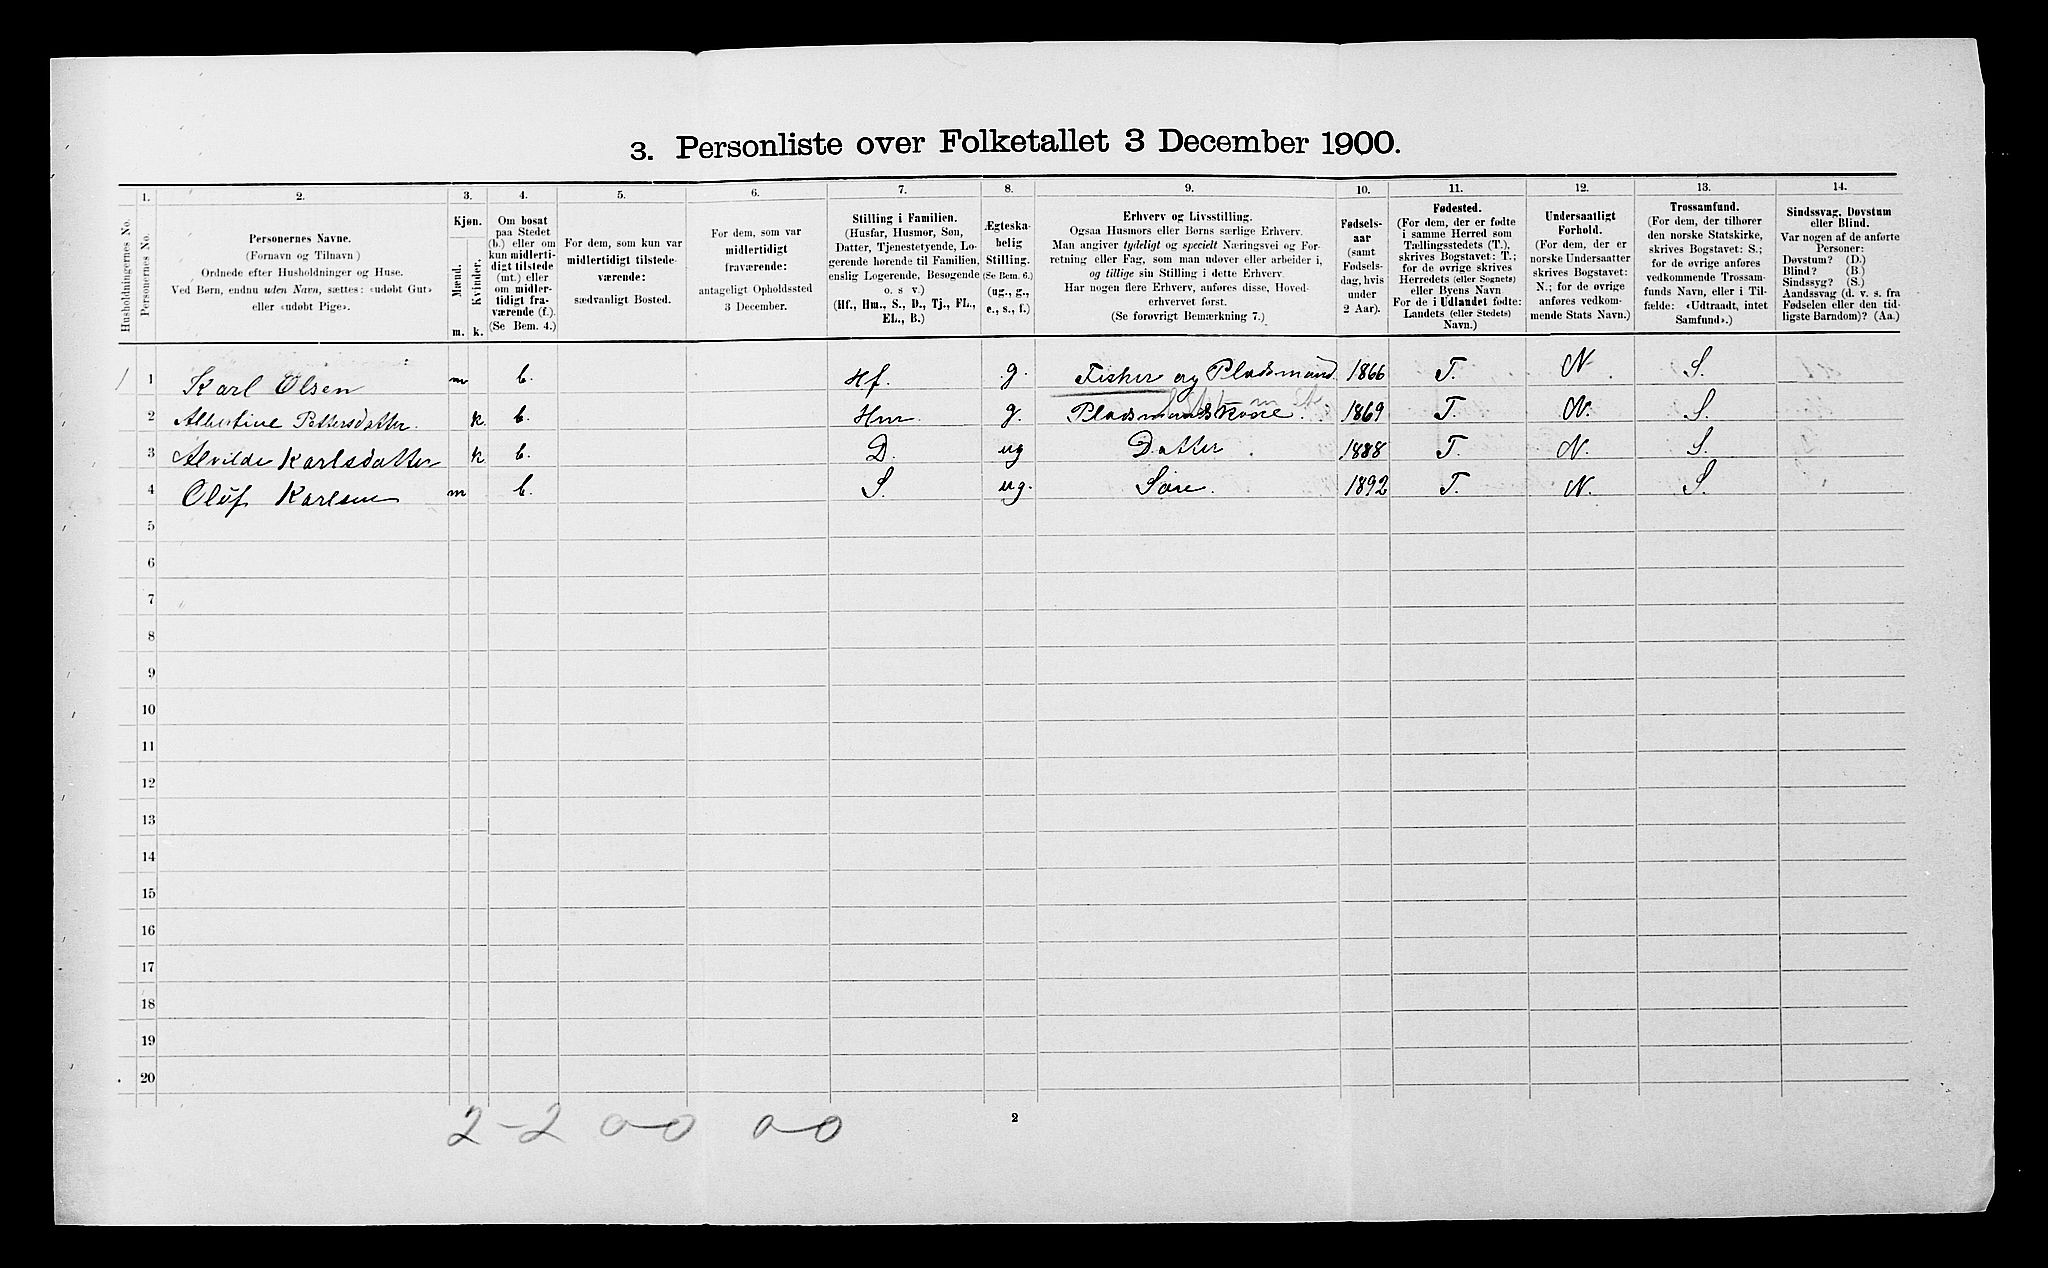 3. Personliste over Folketallet 3 December 1900.
1. 2. 3. 4. 5. 6. 7. 8. 9. 10. 11. 12. 13. 14.
Husholdningernes No.
Personernes No.
Personernes Navne.
(Fornavn og Tilnavn)
Ordnede efter Husholdninger og Huse.
Ved Børn, endnu uden Navn, sættes: «udøbt Gut»
eller «udøbt Pige».
Kjøn.
Mænd.
Kvinder.
m. k.
Om bosat
paa Stedet
(b.) eller om
kun midlerti-
digt tilstede
(mt.) eller
om midler-
tidigt fra-
værende (f.).
(Se Bem. 4.)
For dem, som kun var
midlertidigt tilstede-
værende:
sædvanligt Bosted.
For dem, som var
midlertidigt
fraværende:
antageligt Opholdssted
3 December.
Stilling i Familien.
(Husfar, Husmor, Søn,
Datter, Tjenestetyende, Lo-
gerende hørende til Familien,
enslig Logerende, Besøgende
o. s v.)
(Hf., Hm., S., D., Tj., FL.,
EL., B.)
Ægteska-
belig
Stilling.
(Se Bem. 6.)
(ug., g.,
e., s., f.)
Erhverv og Livsstilling.
Ogsaa Husmors eller Børns særlige Erhverv.
Man angiver tydeligt og specielt Næringsvei og For-
retning eller Fag, som man udøver eller arbeider i,
og tillige sin Stilling i dette Erhverv.
Har nogen flere Erhverv, anføres disse, Hoved-
erhvervet først.
(Se forøvrigt Bemærkning 7.)
Fødsels-
aar
(samt
Fødsels-
dag, hvis
under
2 Aar).
Fødested.
(For dem, der er fødte
i samme Herred som
Tællingsstedets (T.),
skrives Bogstavet: T.;
for de øvrige skrives
Herredets (eller Sognets)
eller Byens Navn
For de i Udlandet fødte:
Landets (eller Stedets)
Navn.)
Undersaatligt
Forhold.
(For dem, der er
norske Undersaatter
skrives Bogstavet:
N.; for de øvrige
anføres vedkom-
mende Stats Navn.)
Trossamfund.
(For dem, der tilhører
den norske Statskirke,
skrives Bogstavet: S.;
for de øvrige anføres
vedkommende Trossam-
funds Navn, eller i Til-
fælde: «Udtraadt, intet
Samfund».)
Sindssvag, Døvstum
eller Blind.
Var nogen af de anførte
Personer:
Døvstum? (D.)
Blind? (B.)
Sindssyg? (S.)
Aandssvag (d. v. s. fra
Fødselen eller den tid-
ligste Barndom)? (Aa.)
1 1 Karl Olsen m b. Hf. g. Fisker og Pladsmand. 1866 T. N. S.
2 Albertine Pettersdatter. k b. Hm g. Pladsmandskone. 1869 T. N. S.
3 Alvilde Karlsdatter k b. D. ug Datter 1888 T. N. S.
4 Oluf Karlsen m b. S. ug. Søn. 1892 T. N. S.
5
6
7
8
9
10
11
12
13
14
15
16
17
18
19
20
2-2 0-0 0-0
2